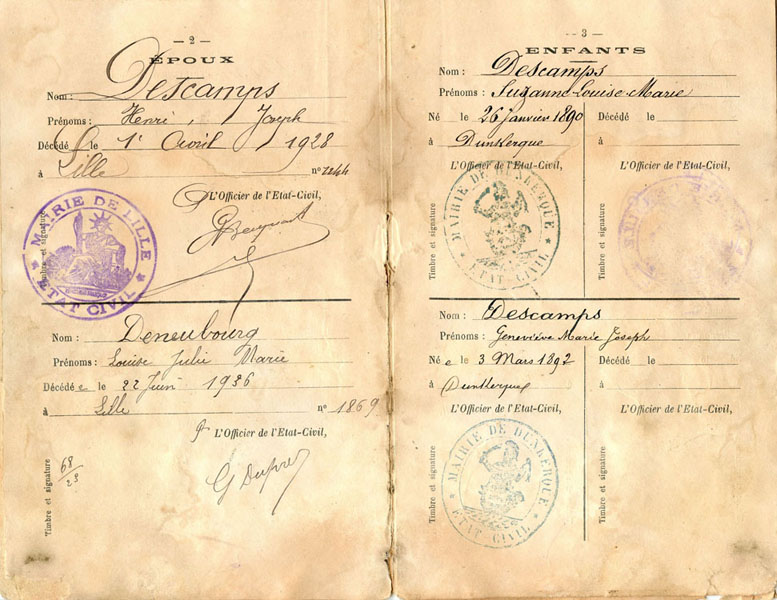 — 2 —
ÉPOUX
Nom : Descamps
Prénoms : Henri, Joseph
Décédé le 1er Avril 1928
à Lille nº 1244
L'Officier de l'Etat-Civil,
Timbre et signature
MAIRIE DE LILLE
ETAT CIVIL
Nom : Deneubourg
Prénoms : Louise Julie Marie
Décédée le 22 Juin 1936
à Lille nº 1869
L'Officier de l'Etat-Civil,
Timbre et signature
68/23
G Dupre
— 3 —
ENFANTS
Nom : Descamps
Prénoms : Suzanne Louise Marie
Né le 26 Janvier 1890 Décédé le
à Dunkerque à
L'Officier de l'Etat-Civil, L'Officier de l'Etat-Civil,
Timbre et signature Timbre et signature
MAIRIE DE DUNKERQUE
ETAT CIVIL
Nom : Descamps
Prénoms : Geneviève Marie Joseph
Née le 3 Mars 1892 Décédé le
à Dunkerque à
L'Officier de l'Etat-Civil, L'Officier de l'Etat-Civil,
Timbre et signature Timbre et signature
MAIRIE DE DUNKERQUE
ETAT CIVIL